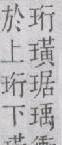 珩璜琚瑀衝
於上珩下璜